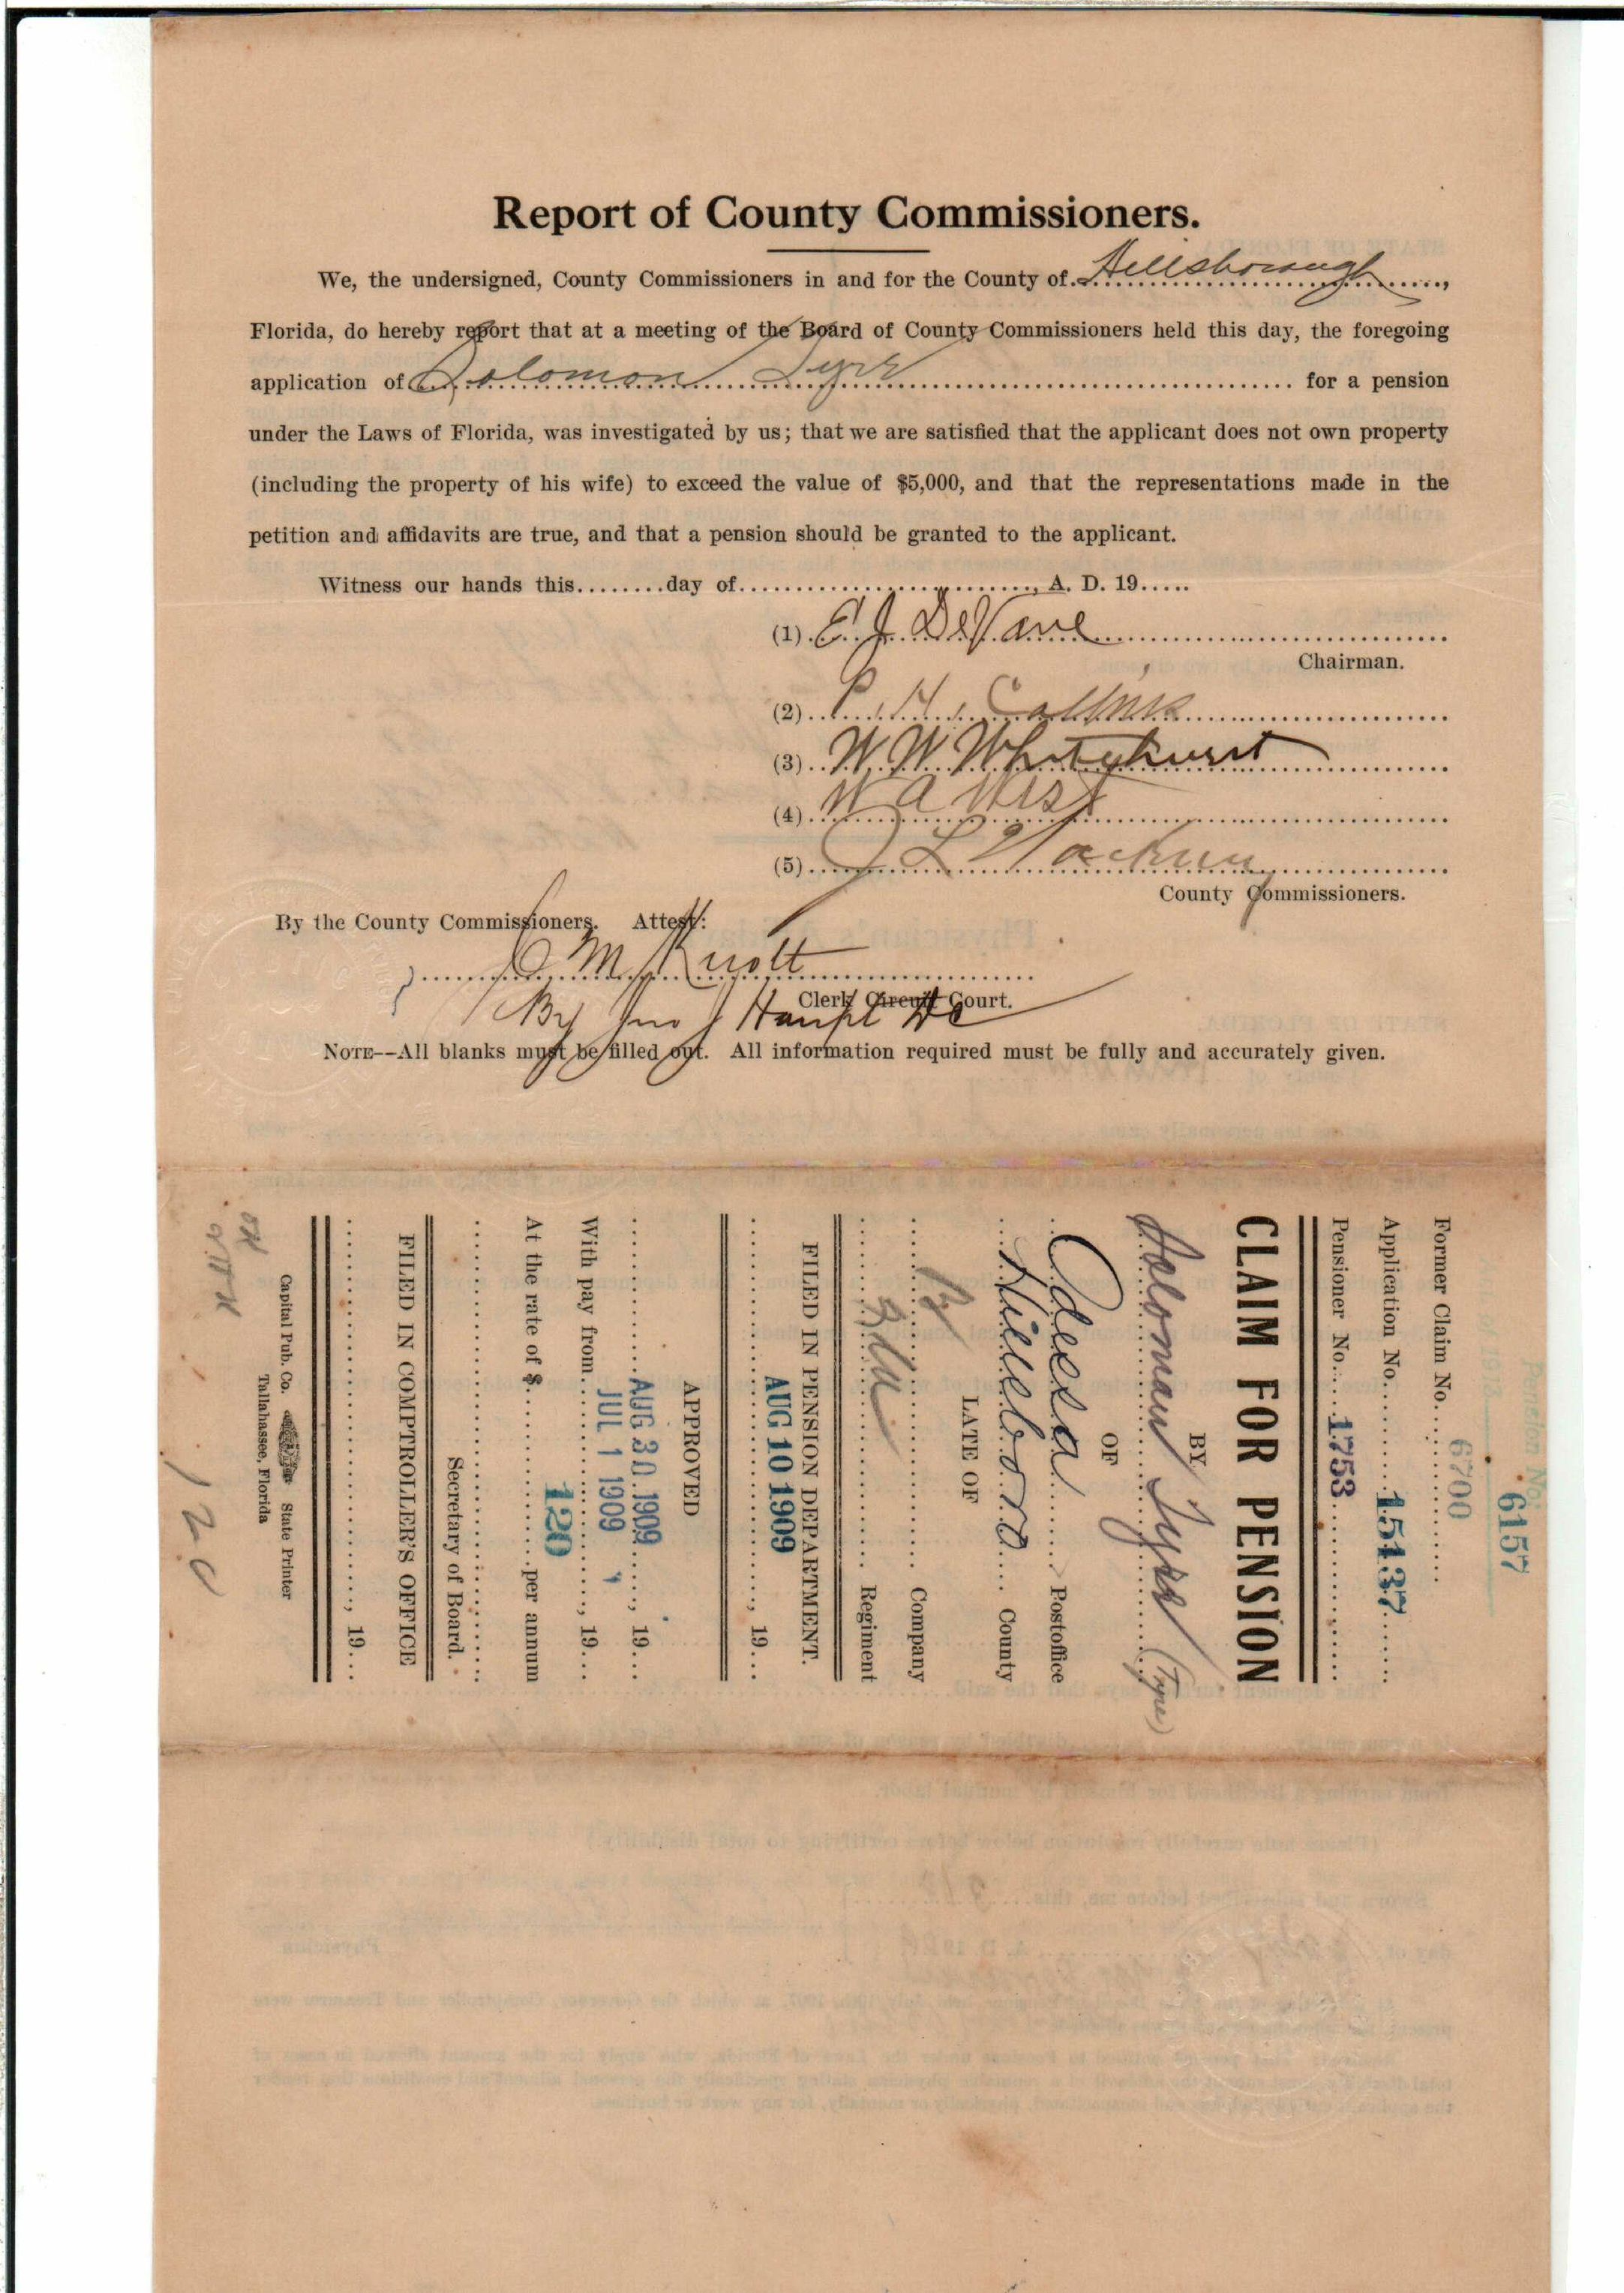 Report of County Commissioners.
We, the undersigned, County Commissioners in and for the County of Hillsborough,
Florida, do hereby report that at a meeting of the Board of County Commissioners held this day, the foregoing
application of Solomon Tyre for a pension
under the Laws of Florida, was investigated by us; that we are satisfied that the applicant does not own property
(including the property of his wife) to exceed the value of $5,000, and that the representations made in the
petition and affidavits are true, and that a pension should be granted to the applicant.
Witness our hands this........day of............................, A. D. 19.....
(1) E. J. DeVane
Chairman.
(2) P. H. Collins
(3) W W Whitehurst
(4) W A West
(5) J L
County Commissioners.
By the County Commissioners. Attest:
M. Knott
Clerk Circuit Court.
By Jno J Haupt DC
NOTE--All blanks must be filled out. All information required must be fully and accurately given.
6157
Pension No.
Former Claim No. 6700
Application No. 15137
Pensioner No. 1753
CLAIM FOR PENSION
BY
Soloman Tyre (Tyre)
OF
Odessa Postoffice
Hillsboro County
LATE OF
Company
Regiment
FILED IN PENSION DEPARTMENT.
AUG 10 1909, 19...
APPROVED
AUG 30 1909, 19...
With pay from JUL 1 1909, 19...
At the rate of $ 120 per annum
Secretary of Board.
FILED IN COMPTROLLER'S OFFICE
, 19...
Capital Pub. Co. State Printer
Tallahassee, Florida
OK
120